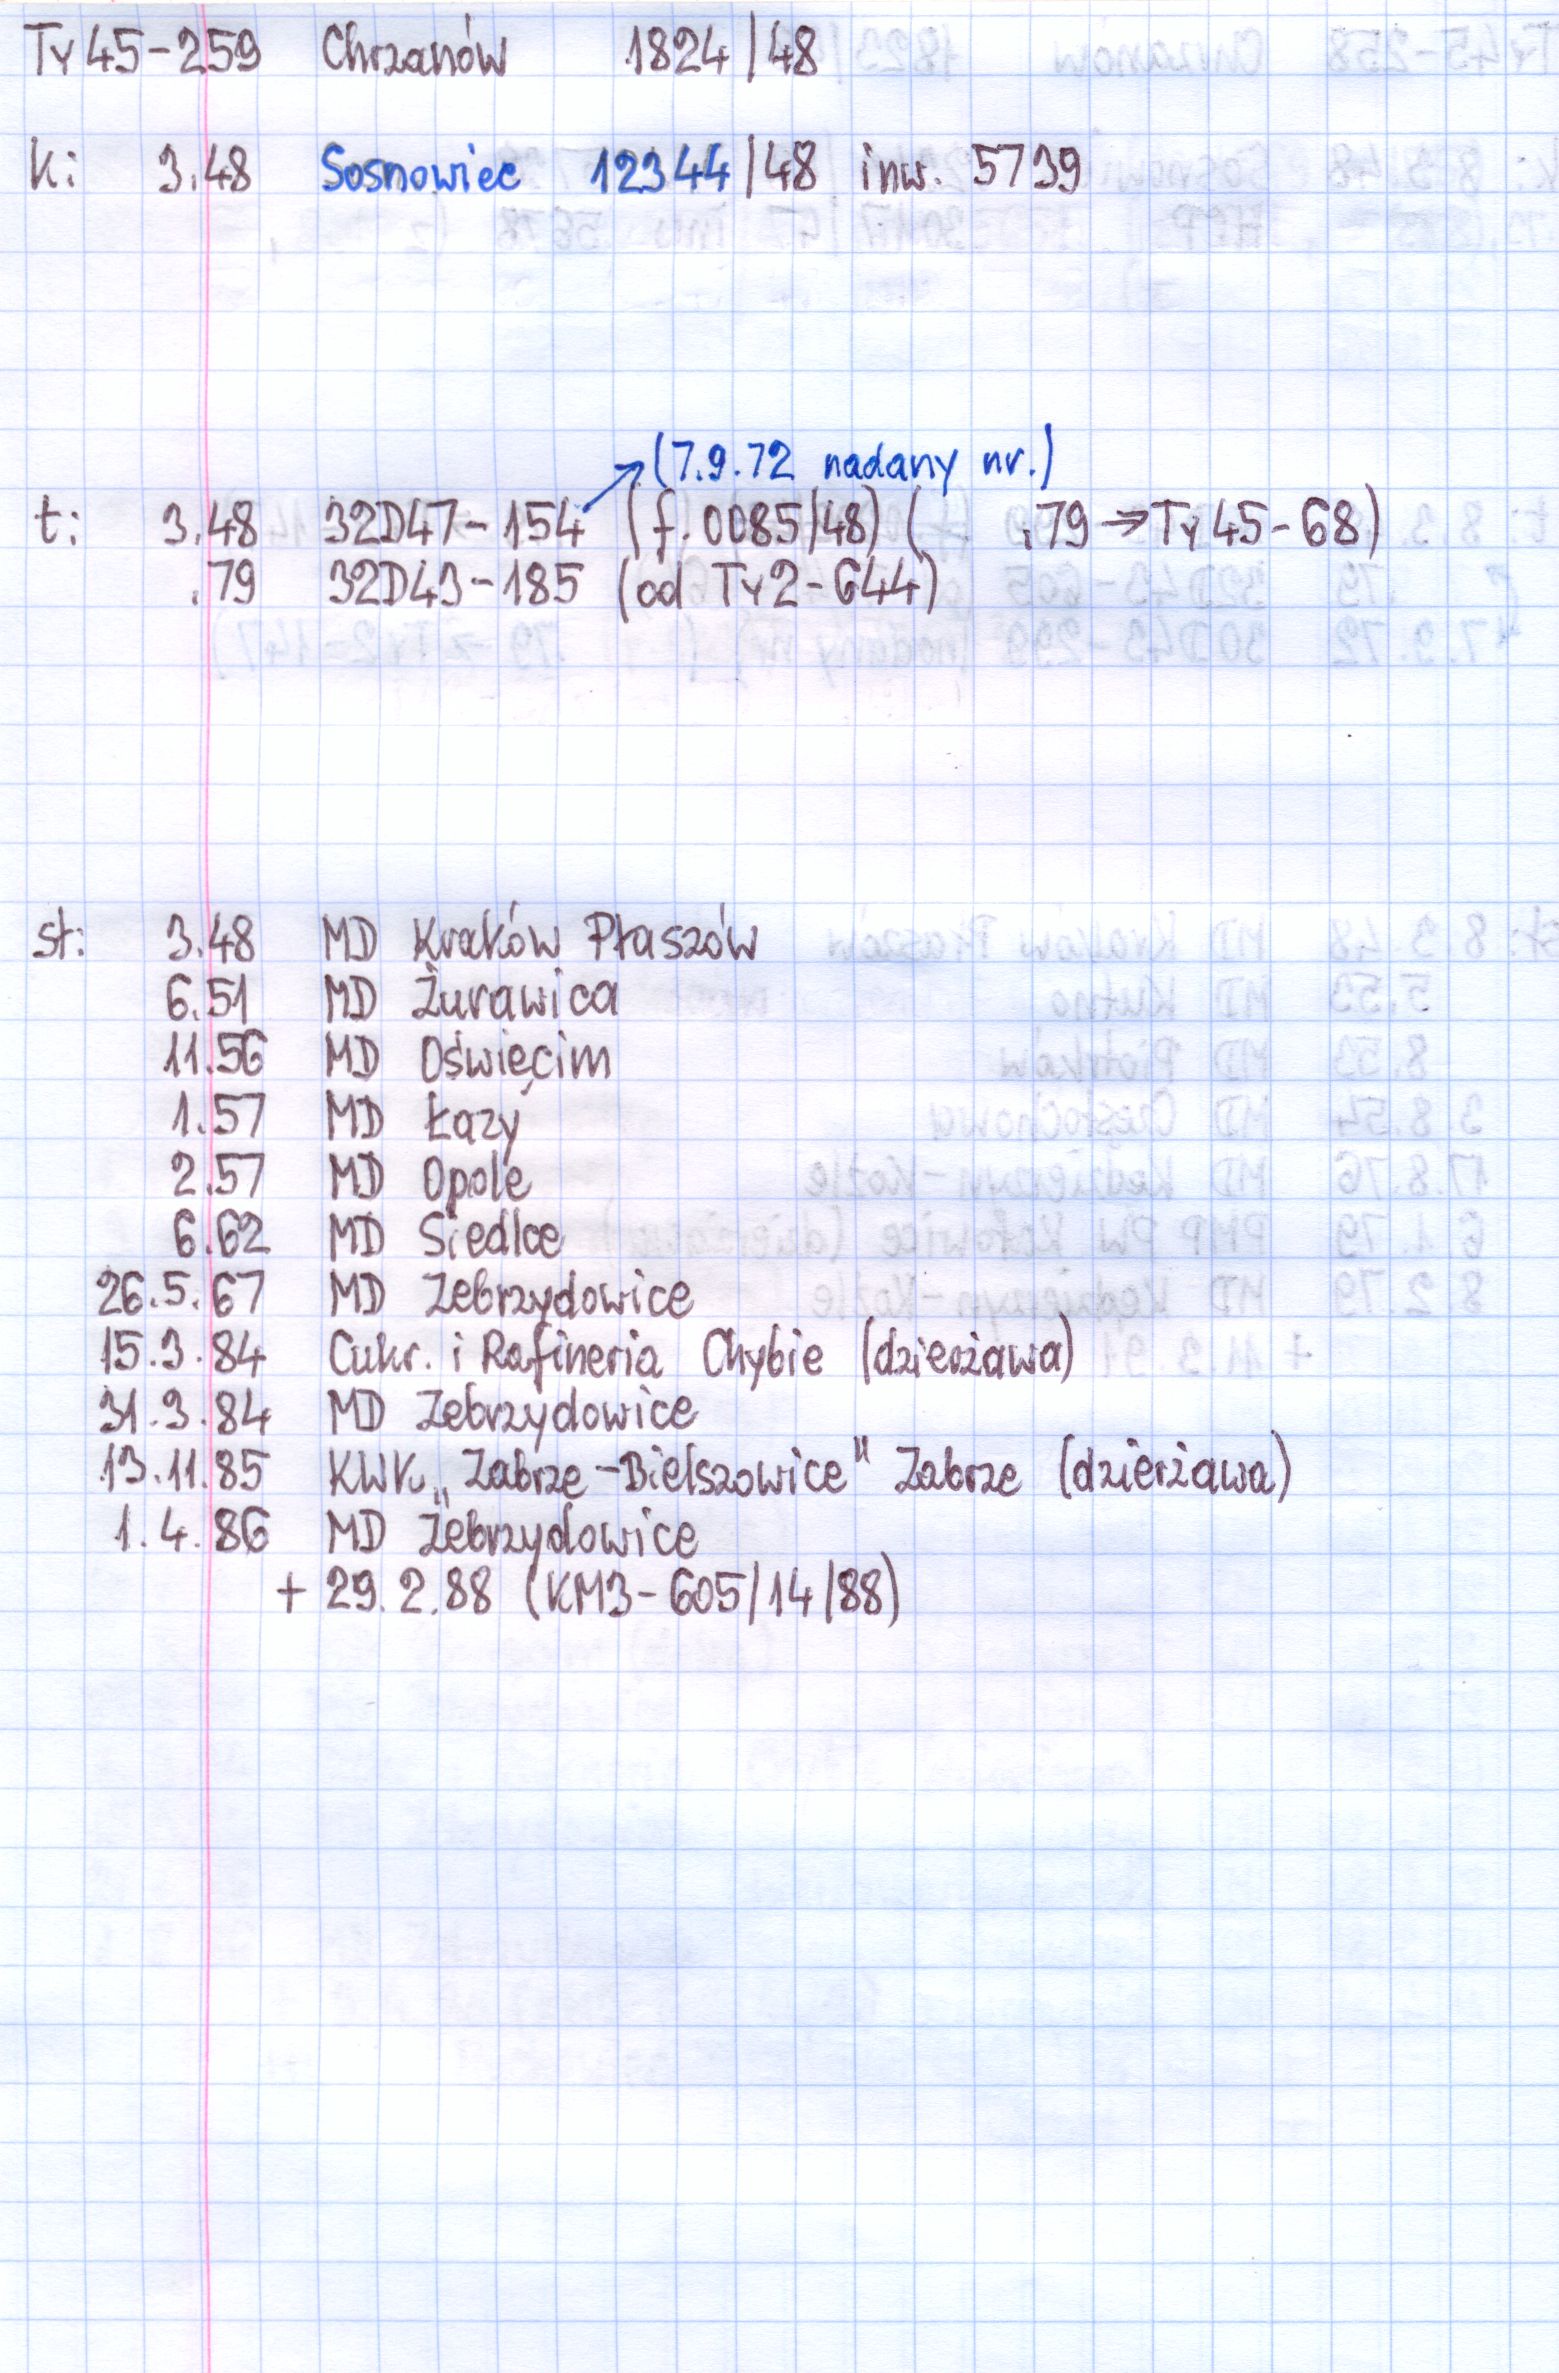 Ty45-259 Chrzanów 1824/48
k: 3.48 Sosnowiec 12344/48 inw. 5739
(7.9.72 nadany nr.)
t: 3.48 32D47-154 (f.0085/48) ( .79 → Ty45-68)
.79 32D43-185 (od Ty2-644)
st: 3.48 MD Kraków Płaszów
6.51 MD Żurawica
11.56 MD Oświęcim
1.57 MD Łazy
2.57 MD Opole
6.62 MD Siedlce
26.5.67 MD Zebrzydowice
15.3.84 Cukr. i Rafineria Chybie (dzierżawa)
31.3.84 MD Zebrzydowice
13.11.85 KWK „Zabrze-Bielszowice" Zabrze (dzierżawa)
1.4.86 MD Zebrzydowice
+ 29.2.88 (KM3-605/14/88)